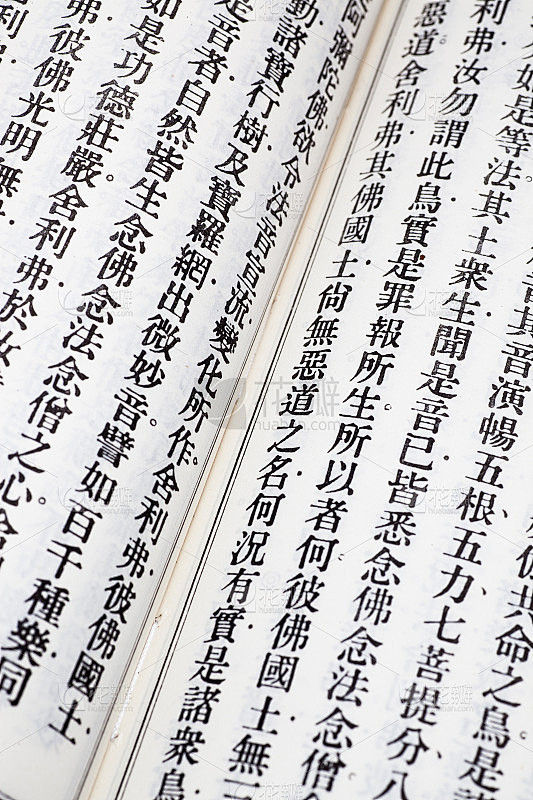 伽共命之鳥是諸
音其音演暢五根、五力、七菩提分、八
如是等法其土衆生聞是音已皆悉念佛念法念僧
利弗汝勿謂此鳥實是罪報所生。所以者何彼佛國土無
惡道舍利弗其佛國土尚無惡道之名何況有實是諸衆鳥
彌陀佛欲令法音宣流變化所作。舍利弗彼佛國土
動諸寶行樹及寶羅網出微妙音。譬如百千種樂同
是音者自然皆生念佛念法念僧之心。舍
如是功德莊嚴。舍利弗於汝
弗彼佛光明無